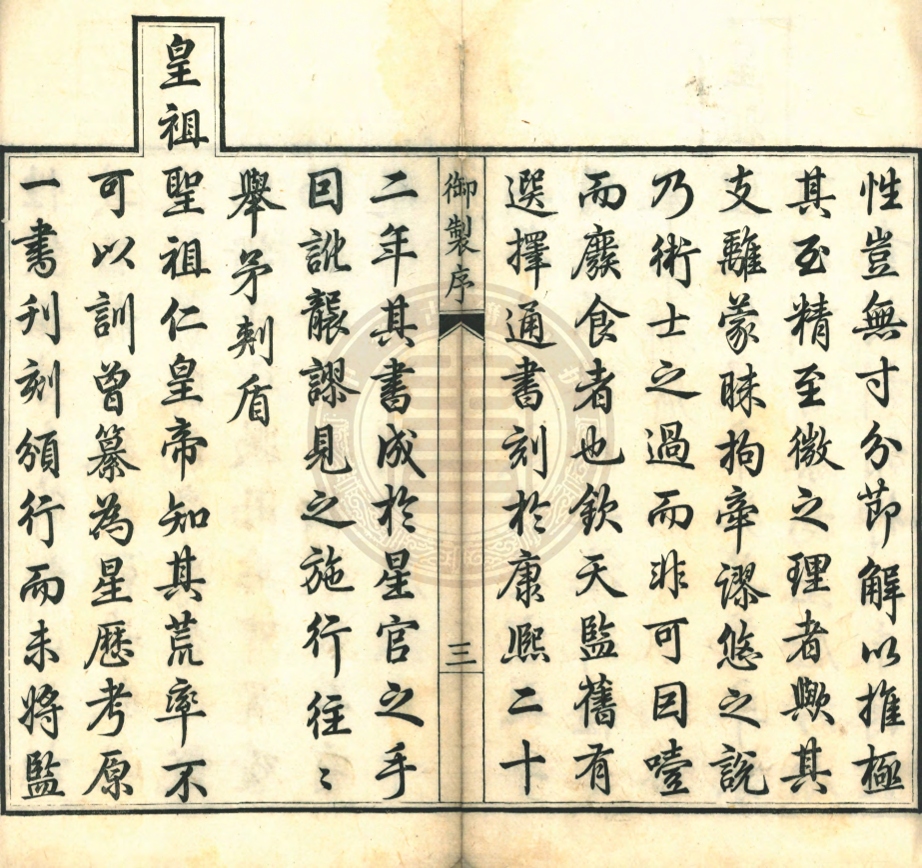 性豈無寸分節解以推極
其至精至微之理者歟其
支離蒙昧拘牽謬悠之說
乃術士之過而非可因噎
而廢食者也欽天監舊有
選擇通書刻於康熙二十
御製序
三
二年其書成於星官之手
因訛襲謬見之施行往〻
舉矛刺盾
皇祖聖祖仁皇帝知其荒率不
可以訓曾纂為星歷考原
一書刊刻頒行而未將監